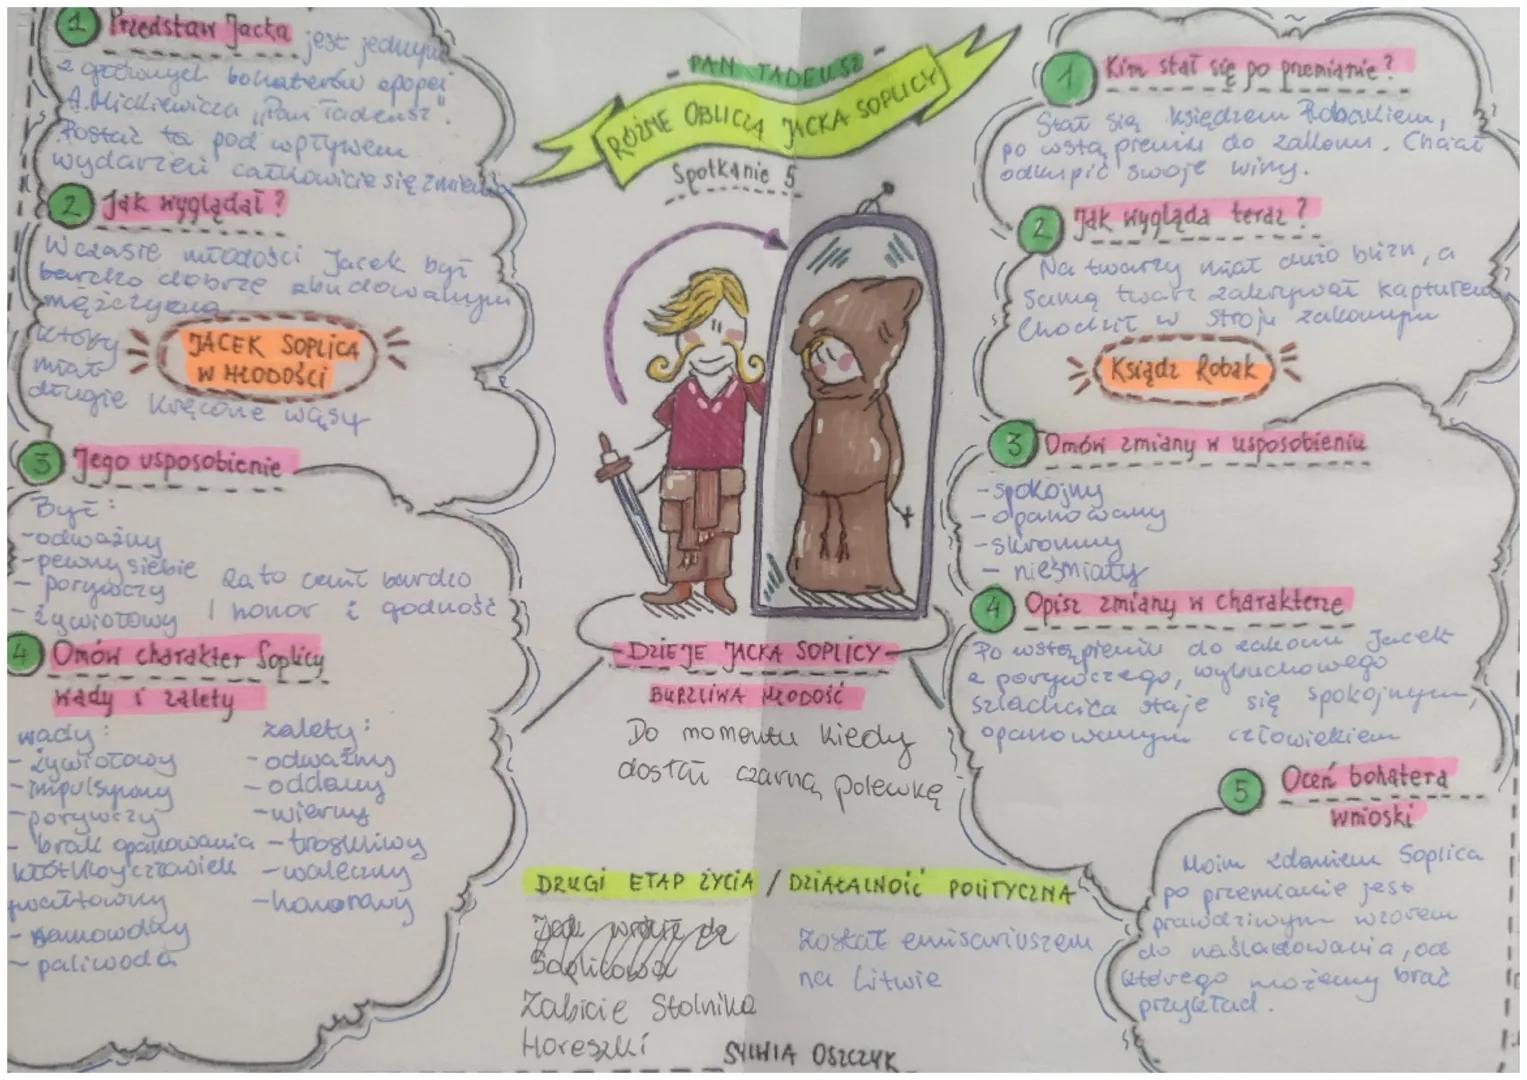 - PAN TADEUSZ -
RÓŻNE OBLICZA JACKA SOPLICY
Spotkanie 5
1 Przedstaw Jacka
jest jednym
z głównych bohaterów epopei
A. Mickiewicza „Pan Tadeusz".
Postać ta pod wpływem
wydarzeń całkowicie się zmienia
2 Jak wyglądał?
W czasie młodości Jacek był
bardzo dobrze zbudowanym
mężczyzną
który
miał
długie kręcone wąsy
JACEK SOPLICA
W MŁODOŚCI
3 Jego usposobienie
Był:
- odważny
- pewny siebie
- porywczy
- żywiołowy
Za to cenił bardzo
honor i godność
4 Omów charakter Soplicy
wady i zalety
wady:
- żywiołowy
- impulsywny
- porywczy
- brak opanowania
kłótliwy człowiek
gwałtowny
- samowolny
- paliwoda
zalety:
- odważny
- oddany
- wierny
- troskliwy
- waleczny
- honorowy
DZIEJE JACKA SOPLICY
BURZLIWA MŁODOŚĆ
Do momentu kiedy
dostał czarną polewkę
DRUGI ETAP ŻYCIA / DZIAŁALNOŚĆ POLITYCZNA
Soplicowa
Zabicie Stolnika
Horeszki
Został emisariuszem
na Litwie
SYLWIA OSZCZYK
1 Kim stał się po przemianie?
Stał się księdzem Robakiem,
po wstąpieniu do zakonu. Chciał
odkupić swoje winy.
2 Jak wygląda teraz?
Na twarzy miał dużo blizn, a
samą twarz zakrywał kapturem
Chodził w stroju zakonnym
Ksiądz Robak
3 Omów zmiany w usposobieniu
- spokojny
- opanowany
- skromny
- nieśmiały
4 Opisz zmiany w charakterze
Po wstąpieniu do zakonu Jacek
z porywczego, wybuchowego
szlachcica staje się spokojnym,
opanowanym człowiekiem
5 Oceń bohatera
wnioski
Moim zdaniem Soplica
po przemianie jest
prawdziwym wzorem
do naśladowania, od
którego możemy brać
przykład.